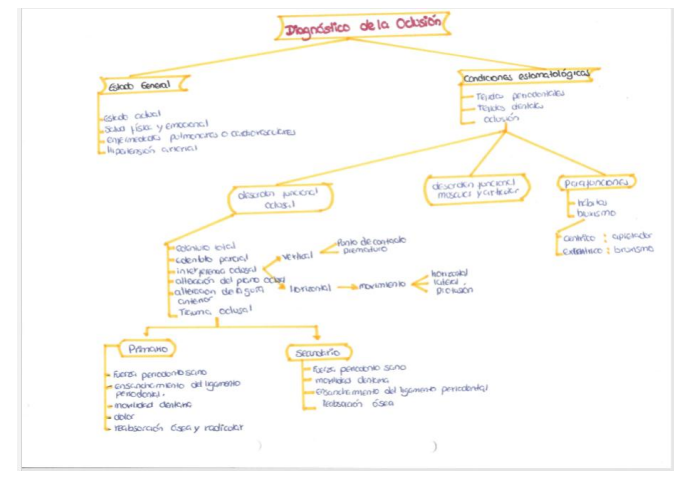 Diagnóstico de la Oclusión
Estado General
Condiciones estomatológicas
estado actual
Salud física y emocional
enfermedades pulmonares o cardiovasculares
hipertensión arterial
Tejidos periodontales
Tejidos dentales
oclusión
desorden funcional
oclusal
desorden funcional
muscular y articular
Parafunciones
hábitos
bruxismo
centrico : apretador
excéntrico : bruxismo
edéntulo total
edentulo parcial
interferencia oclusal
alteración del plano oclusal
alteración de la guía
anterior
Trauma oclusal
vertical
Punto de contacto
prematuro
Horizontal
movimiento
horizontal
lateral
Protusión
Primario
Fuerza periodonto sano
ensanchamiento del ligamento
periodontal.
movilidad dentaria
dolor
reabsorción ósea y radicular
Secundario
fuerza periodonto sano
movilidad dentaria
Ensanchamiento del ligamento periodontal
ósea